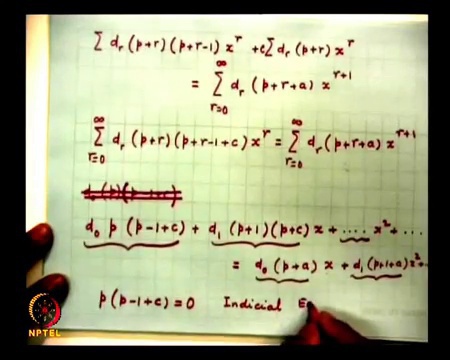 Σ d_r (p+r)(p+r-1) x^r + cΣ d_r (p+r) x^r
= Σ_{r=0}^{∞} d_r (p+r+a) x^{r+1}
Σ_{r=0}^{∞} d_r (p+r)(p+r-1+c) x^r = Σ_{r=0}^{∞} d_r (p+r+a) x^{r+1}
d_0 p (p-1+c) + d_1 (p+1)(p+c) x + .... x^2 + ...
= d_0 (p+a) x + d_1 (p+1+a) x^2 ..
p (p-1+c) = 0 Indicial E
NPTEL